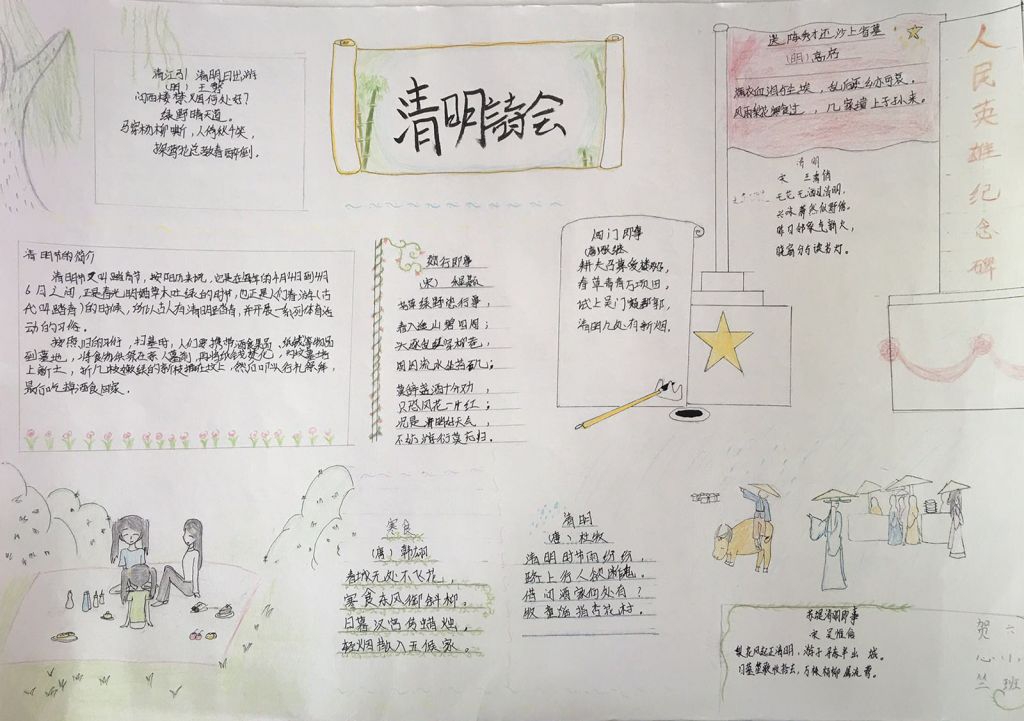 清江引 清明日出游
(明) 王磐
问西楼禁烟何处好?
绿野晴天道。
马穿杨柳嘶,人倚秋千笑,
探莺花总教春醉倒。
清明诗会
送陈秀才还沙上省墓
(明)高启
满衣血泪与尘埃,乱后还乡亦可哀。
风雨梨花寒食过,几家坟上子孙来。
人民英雄纪念碑
清明
宋 王禹偁
无花无酒过清明,
兴味萧然似野僧。
昨日邻家乞新火,
晓窗分与读书灯。
清明节的简介
清明节又叫踏青节,按阳历来说,它是在每年的4月4日到4月
6日之间,正是春光明媚草木吐绿的时节,也正是人们春游(古
代叫踏青)的好时候,所以古人有清明踏青,并开展一系列体育活
动的习俗。
按照旧的习俗,扫墓时,人们要携带酒食果品、纸钱等物品
到墓地,将食物供祭在亲人墓前,再将纸钱焚化,为坟墓培
上新土,折几枝嫩绿的新枝插在坟上,然后叩头行礼祭拜,
最后吃掉酒食回家。
郊行即事
(宋) 程颢
芳草绿野恣行事,
春入遥山碧四周;
兴逐乱红穿柳巷,
困临流水坐苔矶;
莫辞盏酒十分劝,
只恐风花一片红;
况是清明好天气,
不妨游衍莫忘归。
闾门即事
(唐)张继
耕夫召募爱楼船,
春草青青万项田;
试上吴门窥郡郭,
清明几处有新烟。
寒食
(唐) 韩翃
春城无处不飞花,
寒食东风御斜柳。
日暮汉宫传蜡烛,
轻烟散入五侯家。
清明
(唐) 杜牧
清明时节雨纷纷,
路上行人欲断魂。
借问酒家何处有?
牧童遥指杏花村。
苏堤清明即事
宋 吴惟信
梨花风起正清明,游子寻春半出城。
日暮笙歌收拾去,万株杨柳属流莺。
六小班
贺心竺